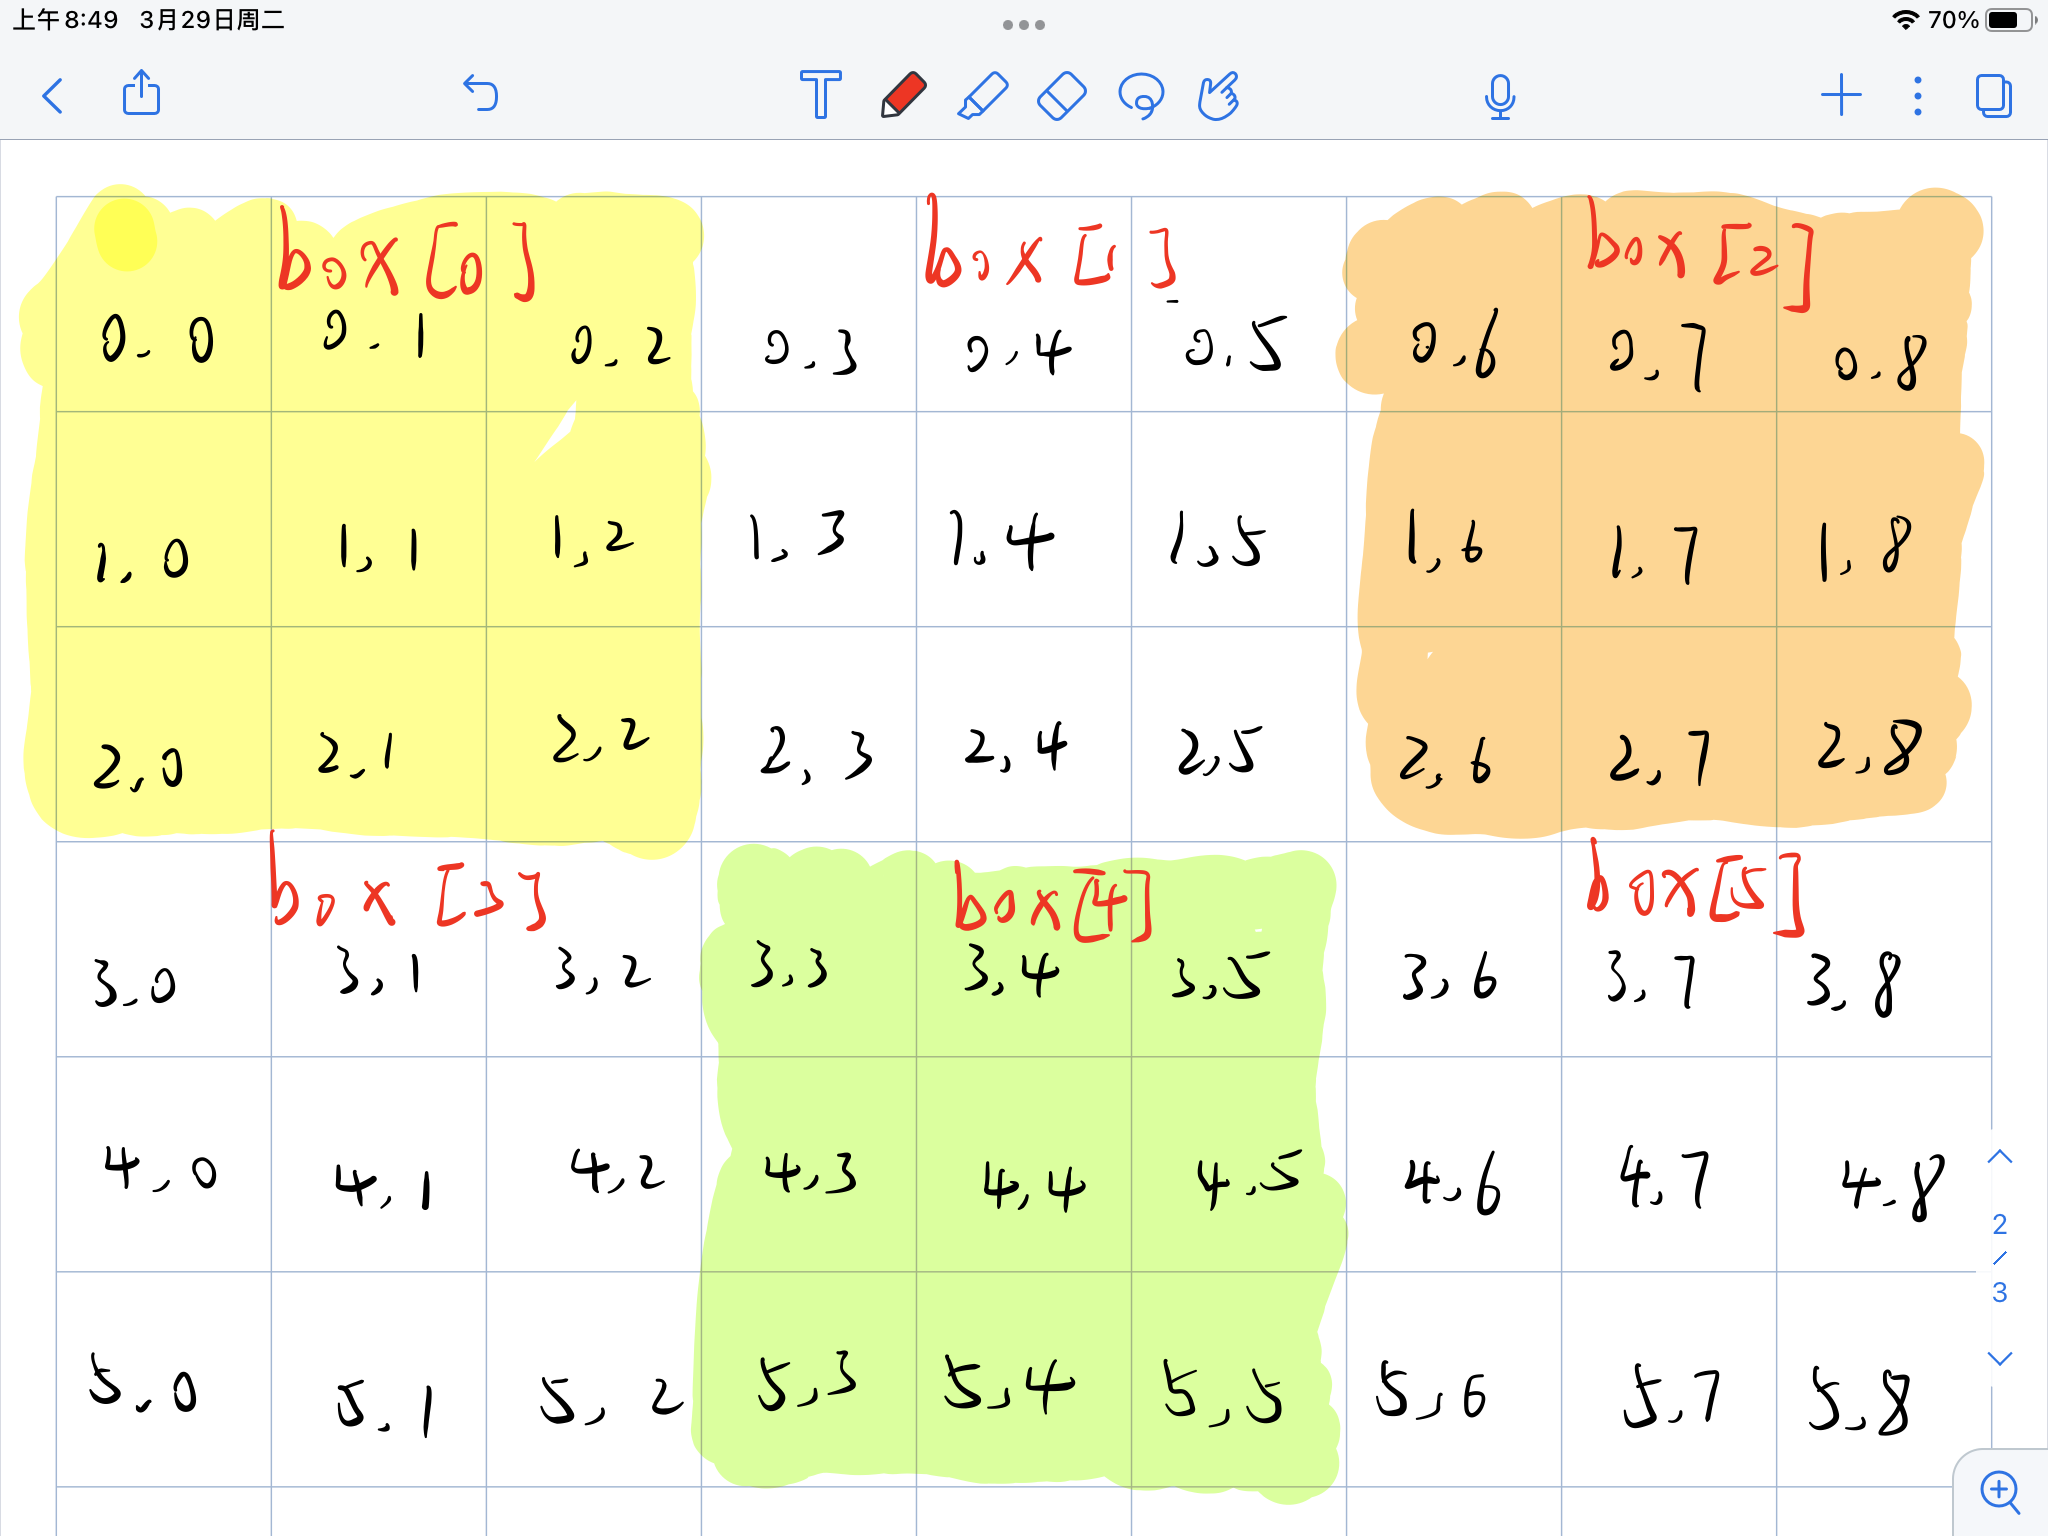 上午8:49 3月29日周二
70%
T
box[0] box[1] box[2]
0.0 0.1 0.2 0.3 0,4 0.5 0.6 0,7 0.8
1,0 1,1 1,2 1,3 1,4 1,5 1,6 1,7 1,8
2,0 2,1 2,2 2,3 2,4 2,5 2,6 2,7 2,8
box[3] box[4] box[5]
3,0 3,1 3,2 3,3 3,4 3,5 3,6 3,7 3,8
4,0 4,1 4,2 4,3 4,4 4,5 4,6 4,7 4,8
5,0 5,1 5,2 5,3 5,4 5,5 5,6 5,7 5,8
2
/
3